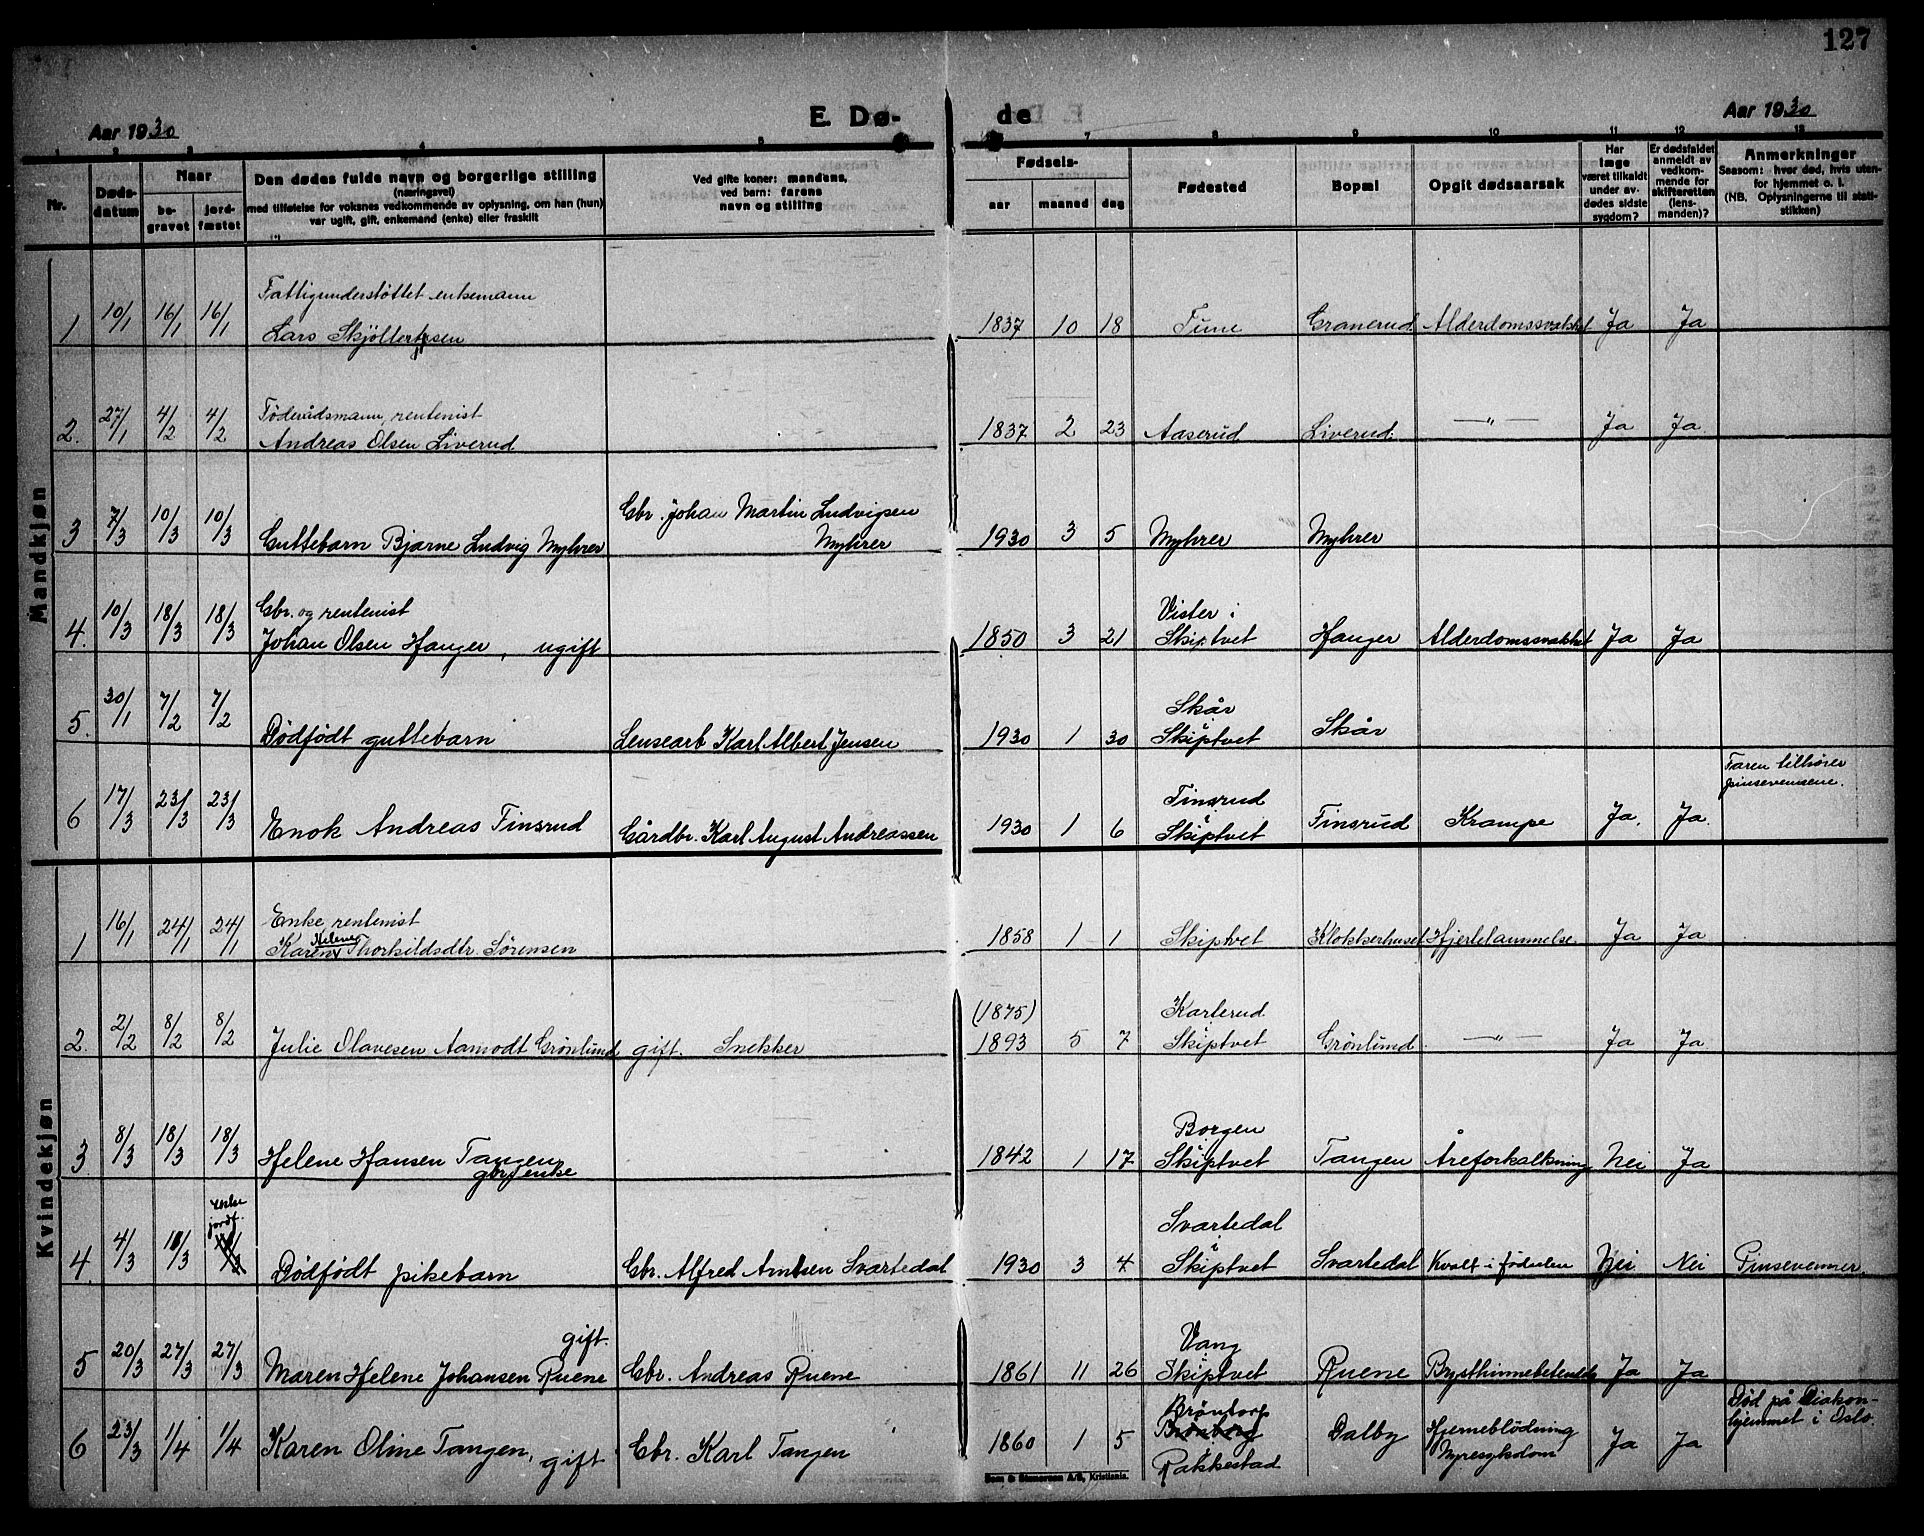 127
Aar 1930
E. Dø-
de
Aar 1930
1 2 3 4 5 7 8 9 10 11 12 13
Nr.
Døds-
datum
Naar
be-
gravet
jord-
fæstet
Den dødes fulde navn og borgerlige stilling
(næringsvei)
med tilføielse for voksnes vedkommende av oplysning, om han (hun)
var ugift, gift, enkemand (enke) eller fraskilt
Ved gifte koner: mandens,
ved barn: farens
navn og stilling
Fødsels-
aar maaned dag
Fødested
Bopæl
Opgit dødsaarsak
Har
læge
været tilkaldt
under av-
dødes sidste
sygdom?
Er dødsfaldet
anmeldt av
vedkom-
mende for
skifteretten
(lens-
manden)?
Anmerkninger
Saasom: hvor død, hvis uten-
for hjemmet o. l.
(NB. Oplysningerne til stati-
stikken)
Mandkjøn
Fattigunderstöttet enkemann
1 10/1 16/1 16/1 Lars Skjöllertsen 1837 10 18 Tune Granerud Alderdomssvakhet Ja Ja
Föderådsmann, rentenist
2. 27/1 4/2 4/2 Andreas Olsen Liverud 1837 2 23 Aaserud Liverud. —"— Ja Ja.
Gbr. Johan Martin Ludvigsen
3 7/3 10/3 10/3 Guttebarn Bjarne Ludvig Myhrer Myhrer 1930 3 5 Myhrer Myhrer
Gbr. og rentenist Vister i
4. 10/3 18/3 18/3 Johan Olsen Hanger, ugift 1850 3 21 Skiptvet Hanger Alderdomssvakhet Ja Ja
Skår
5. 30/1 7/2 7/2 Dödfödt guttebarn Lensearb. Karl Albert Jensen 1930 1 30 i Skiptvet Skår
Faren tilhører
pinsevennene.
Finsrud
6 17/3 23/3 23/3 Enok Andreas Finsrud Gårdbr. Karl August Andreassen 1930 1 6 i Skiptvet Finsrud Krampe Ja. Ja.
Kvindekjøn
Enke, rentenist
Helene
1 16/1 24/1 24/1 Karen Thorkildsdtr. Sörensen 1858 1 1 Skiptvet Klokkerhuset Hjertelammelse Ja Ja
(1875) Karlerud
2. 2/2 8/2 8/2 Julie Olavesen Aamodt Grönlund gift. Snekker 1893 5 7 Skiptvet Grönlund. —"— Ja Ja.
Borgen
3. 8/3 18/3 18/3 Helene Hansen Tangen 1842 1 17 i Skiptvet Tangen Åreforkalkning Nei Ja
gbr.enke
jordf. Svartedal
4. 4/3 11/3 Dödfödt pikebarn Gbr. Alfred Amtsen Svartedal 1930 3 4 i Skiptvet Svartedal Kvalt i födselen Nei Nei Pinsevenner.
gift. Vang
5 20/3 27/3 27/3 Maren Helene Johansen Ruene Gbr. Andreas Ruene 1861 11 26 Skiptvet Ruene Brysthinnebetendelse Ja Ja
Bröntorp Død på Diakon-
hjemmet i Oslo.
6 23/3 1/4 1/4 Karen Oline Tangen, gift Gbr. Karl Tangen 1860 1 5 Dalby Hjerneblödning Ja Ja
Rakkestad Nyresykdom
Sem & Stenersen A/S, Kristiania.